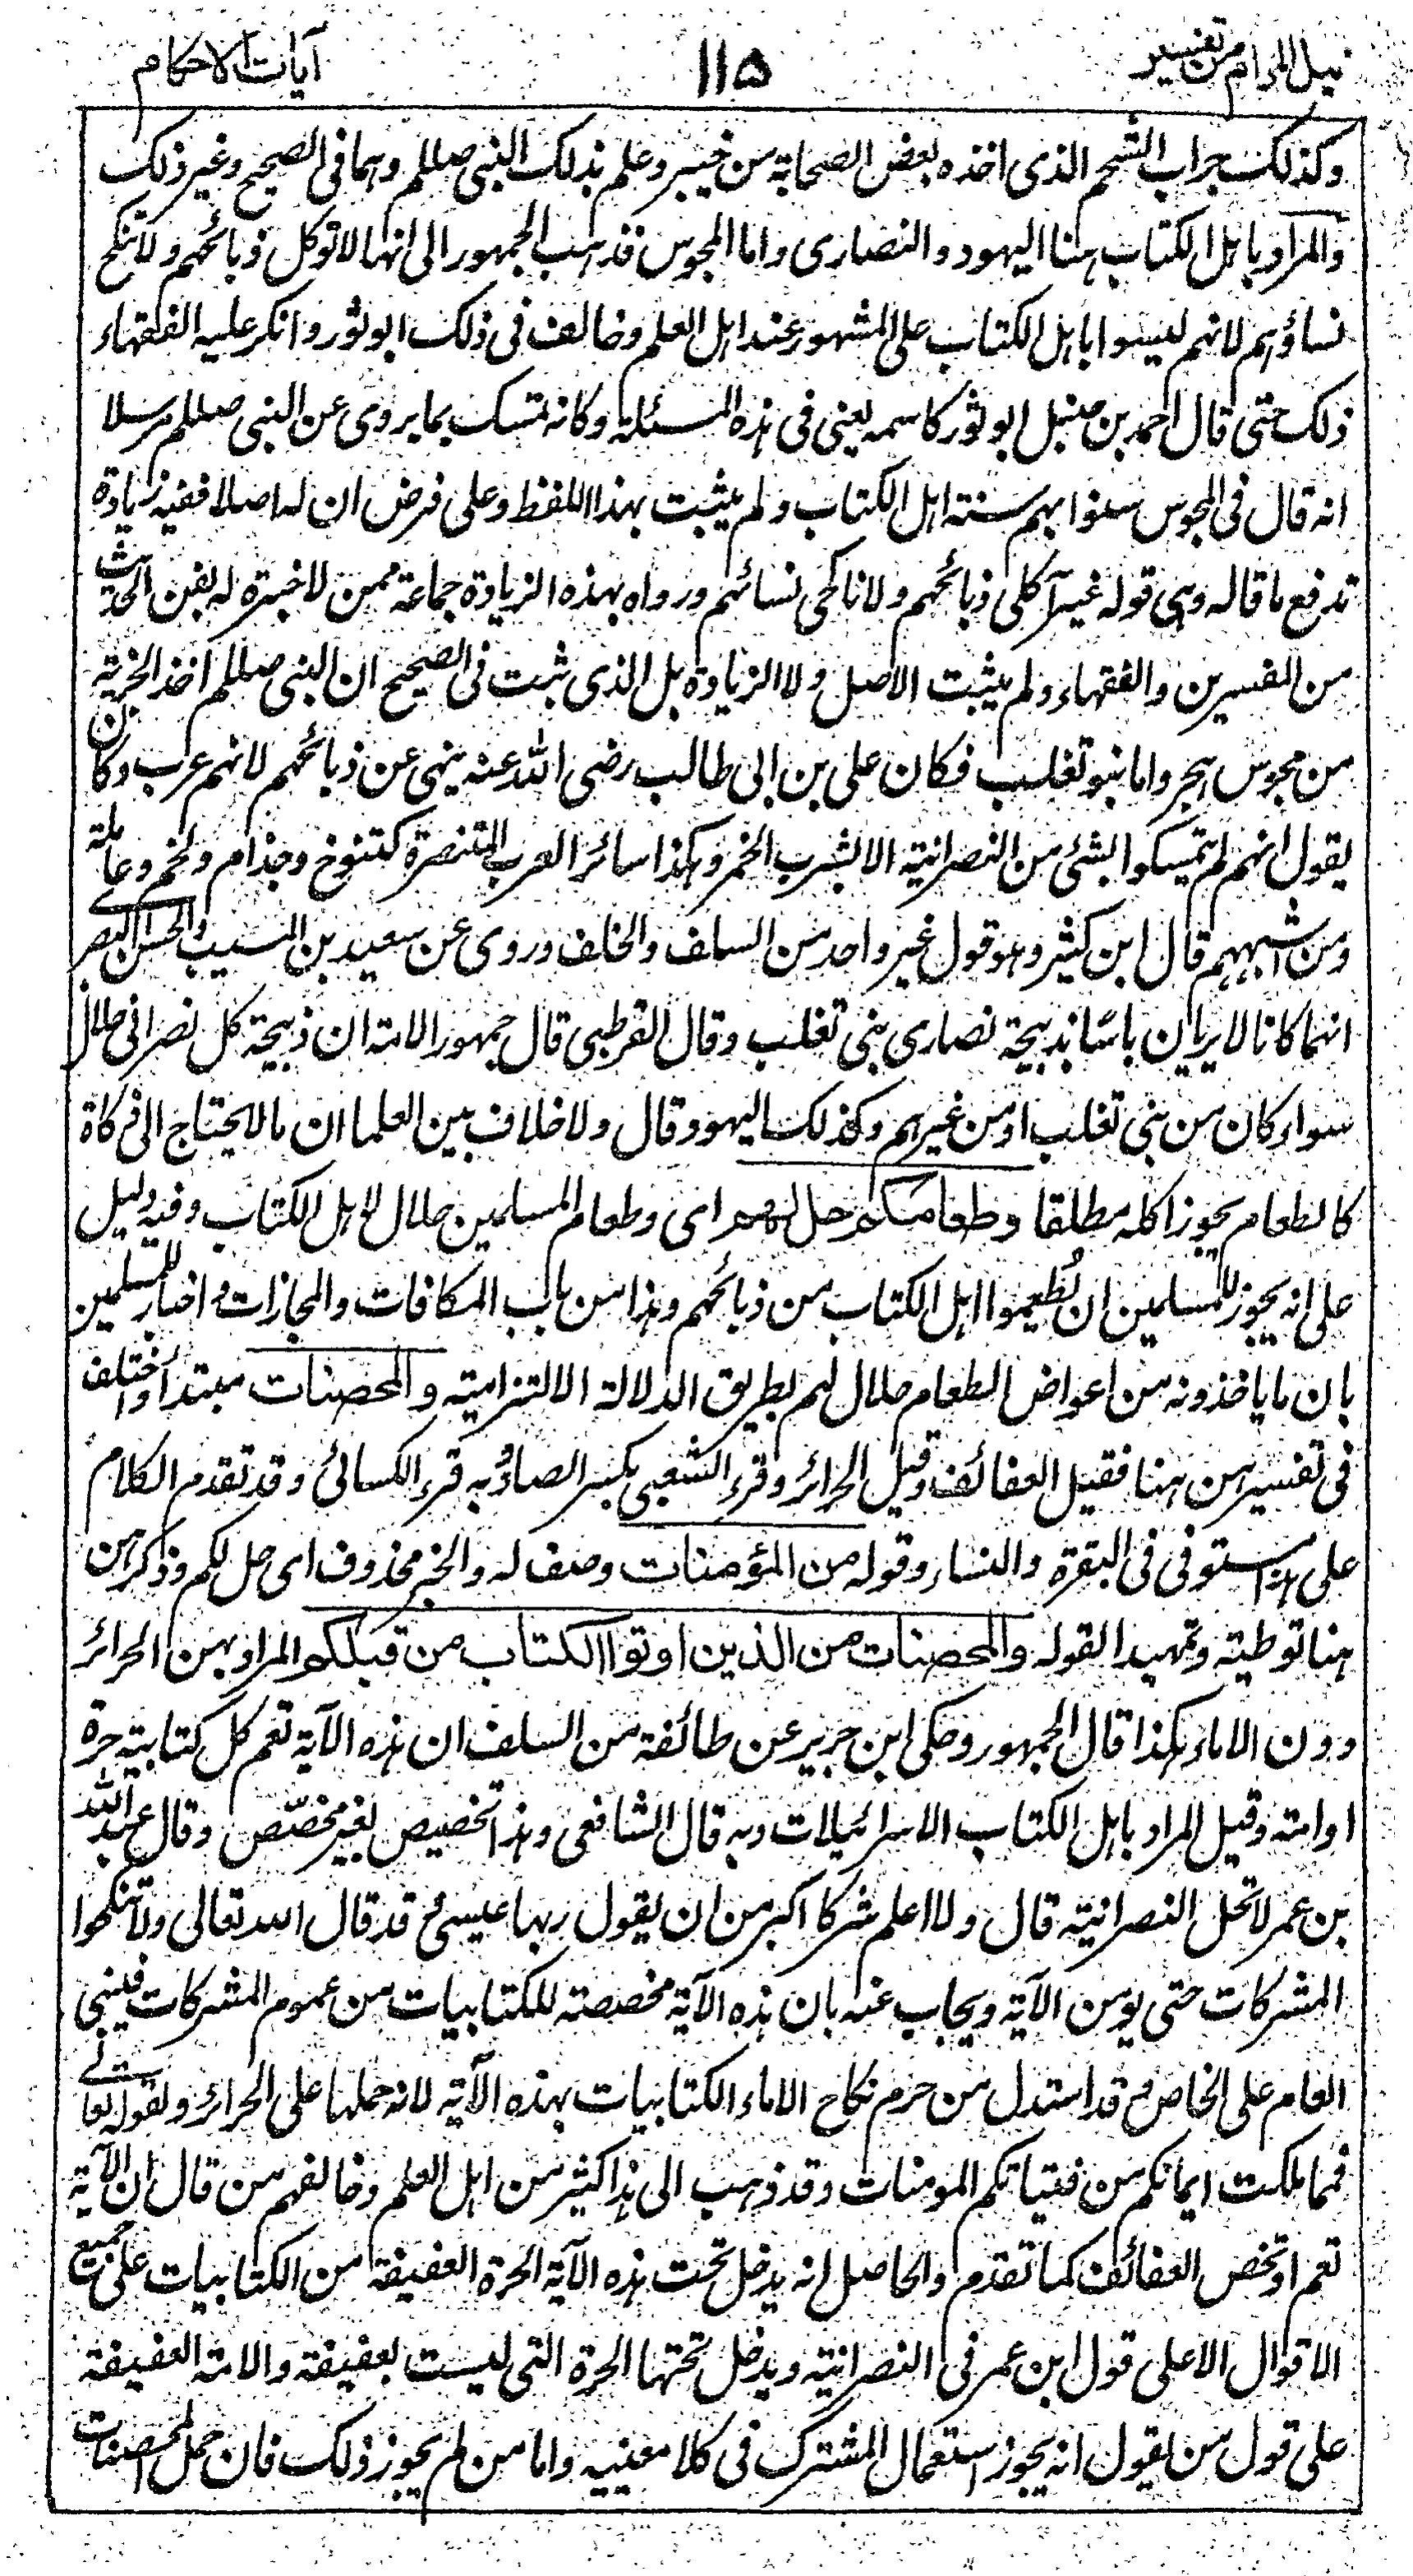 نيل المرام من تفسير
١١٥
آيات الاحكام
وكذلك جراب الشحم الذى اخذه بعض الصحابة من خيبر وعلم بذلك النبى صللم وهما فى الصحيح وغير ذلك
والمراد باهل الكتاب هنا اليهود والنصارى واما المجوس فذهب الجمهور الى انها لا توكل ذبائحهم ولا تنكح
نساؤهم لانهم ليسوا باهل الكتاب على المشهور عند اهل العلم وخالف فى ذلك ابو ثور وانكر عليه الفقهاء
ذلك حتى قال احمد بن حنبل ابو ثور كاسمه يعنى فى هذه المسئلة وكانه تمسك بما يروى عن النبى صللم مرسلا
انه قال فى المجوس سنوا بهم سنة اهل الكتاب ولم يثبت بهذا اللفظ وعلى فرض ان له اصلا ففيه زيادة
تدفع ما قاله وهى قوله غير آكلى ذبائحهم ولا ناكحى نسائهم ورواه بهذه الزيادة جماعة ممن لا خبرة له بفن الحديث
من المفسرين والفقهاء ولم يثبت الاصل ولا الزيادة بل الذى ثبت فى الصحيح ان النبى صللم اخذ الجزية
من مجوس هجر واما بنو تغلب فكان على بن ابى طالب رضى الله عنه ينهى عن ذبائحهم لانهم عرب وكان
يقول انهم لم يتمسكوا بشئ من النصرانية الا بشرب الخمر وهكذا سائر العرب المتنصرة كتنوخ وجذام ولخم وعاملة
ومن اشبههم قال ابن كثير وهو قول غير واحد من السلف والخلف وروى عن سعيد بن المسيب والحسن البصرى
انهما كانا لا يريان باسًا بذبيحة نصارى بنى تغلب وقال القرطبى قال جمهور الامة ان ذبيحة كل نصرانى حلال
سواء كان من بنى تغلب او من غيرهم وكذلك اليهود وقال ولا خلاف بين العلما ان ما لا يحتاج الى ذكاة
كالطعام يجوز اكله مطلقا وطعامكم حل لهم اى وطعام المسلمين حلال لاهل الكتاب وفيه دليل
على انه يجوز للمسلمين ان يُطعموا اهل الكتاب من ذبائحهم وهذا من باب المكافات والمجازات واخبار للمسلمين
بان ما ياخذونه من اعواض الطعام حلال لهم بطريق الدلالة الالتزامية والمحصنات مبتدأ واختلف
فى تفسيرهن هنا فقيل العفائف وقيل الحرائر وقرء الشعبى بكسر الصاد وبه قرء الكسائى وقد تقدم الكلام
على هذا مستوفى فى البقرة والنساء وقوله من المؤمنات وصف له والخبر محذوف اى حل لكم وذكرهن
هنا توطية وتمهيدا لقوله والمحصنات من الذين اوتوا الكتاب من قبلكم والمراد بهن الحرائر
دون الاماء هكذا قال الجمهور وحكى ابن جرير عن طائفة من السلف ان هذه الآية تعم كل كتابية حرة
او امة وقيل المراد باهل الكتاب الاسرائيلات وبه قال الشافعى وهذا تخصيص بغير مخصّص وقال عبد الله
بن عمر لا تحل النصرانية قال ولا اعلم شركا اكبر من ان يقول ربها عيسى وقد قال الله تعالى ولا تنكحوا
المشركات حتى يومن الآية ويجاب عنه بان هذه الآية مخصصة للكتابيات من عموم المشركات فيبنى
العام على الخاص وقد استدل من حرم نكاح الاماء الكتابيات بهذه الآية لانه حملها على الحرائر ولقوله تعالى
فمما ملكت ايمانكم من فتياتكم المومنات وقد ذهب الى هذا كثير من اهل العلم وخالفهم من قال ان الآية
تعم او تخص العفائف كما تقدم والحاصل انه يدخل تحت هذه الآية الحرة العفيفة من الكتابيات على جميع
الاقوال الا على قول ابن عمر فى النصرانية ويدخل تحتها الحرة التى ليست بعفيفة والامة العفيفة
على قول من يقول انه يجوز استعمال المشترك فى كلا معنييه واما من لم يجوز ذلك فان حمل المحصنات